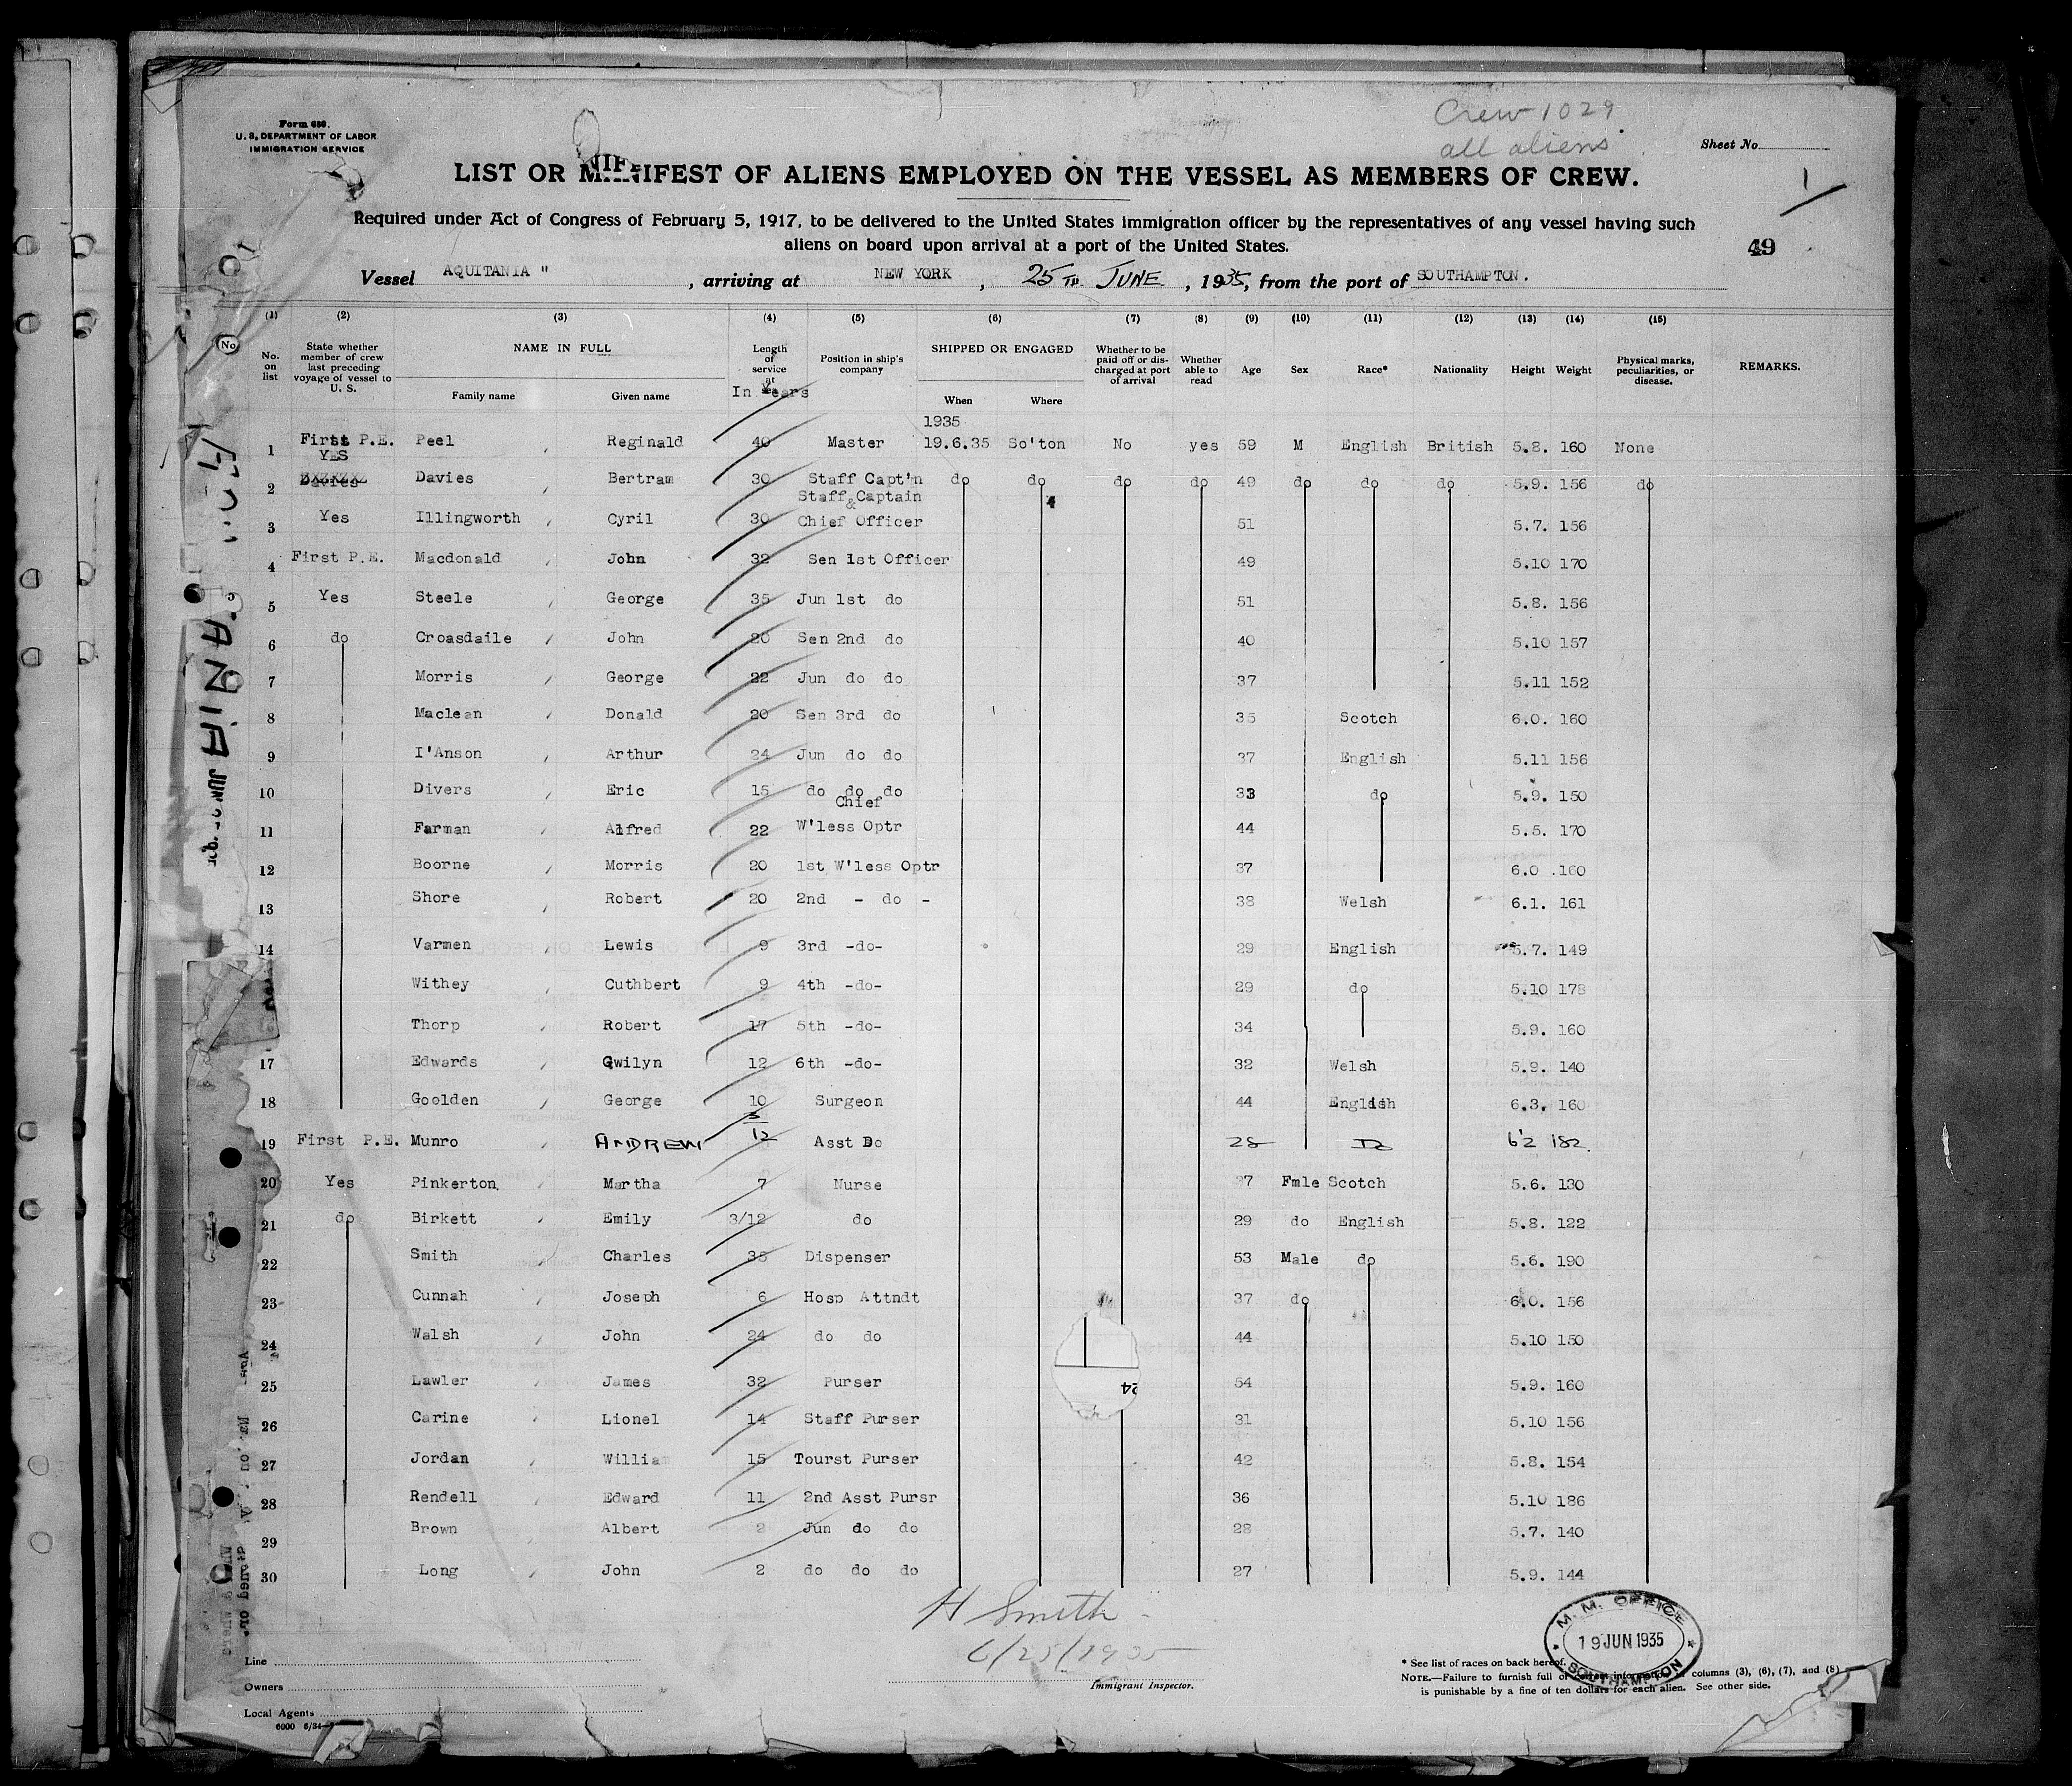 Form 680.
U. S. DEPARTMENT OF LABOR
IMMIGRATION SERVICE
Crew 1029
all aliens
Sheet No.
1
LIST OR MANIFEST OF ALIENS EMPLOYED ON THE VESSEL AS MEMBERS OF CREW.
Required under Act of Congress of February 5, 1917, to be delivered to the United States immigration officer by the representatives of any vessel having such
aliens on board upon arrival at a port of the United States.
49
Vessel AQUITANIA " , arriving at NEW YORK , 25TH JUNE , 1935, from the port of SOUTHAMPTON.
(1) (2) (3) (4) (5) (6) (7) (8) (9) (10) (11) (12) (13) (14) (15)
No. on list State whether member of crew last preceding voyage of vessel to U. S. NAME IN FULL Family name Given name Length of service at In Years Position in ship's company SHIPPED OR ENGAGED When Where Whether to be paid off or discharged at port of arrival Whether able to read Age Sex Race* Nationality Height Weight Physical marks, peculiarities, or disease. REMARKS.
1935
1 First P.E. Peel , Reginald 40 Master 19.6.35 So'ton No yes 59 M English British 5.8. 160 None
YES
2 Davies , Bertram 30 Staff Capt'n do do do do 49 do do do 5.9. 156 do
Staff Captain
3 Yes Illingworth , Cyril 30 & Chief Officer 51 5.7. 156
4 First P.E. Macdonald , John 32 Sen 1st Officer 49 5.10 170
5 Yes Steele , George 35 Jun 1st do 51 5.8. 156
6 do Croasdaile , John 20 Sen 2nd do 40 5.10 157
7 Morris , George 22 Jun do do 37 5.11 152
8 Maclean , Donald 20 Sen 3rd do 35 Scotch 6.0. 160
9 I'Anson , Arthur 24 Jun do do 37 English 5.11 156
10 Divers , Eric 15 do do do 33 do 5.9. 150
Chief
11 Farman , Alfred 22 W'less Optr 44 5.5. 170
12 Boorne , Morris 20 1st W'less Optr 37 6.0 .160
13 Shore , Robert 20 2nd - do - 38 Welsh 6.1. 161
14 Varmen , Lewis 9 3rd -do- 29 English 5.7. 149
Withey , Cuthbert 9 4th -do- 29 do 5.10 178
Thorp , Robert 17 5th -do- 34 5.9. 160
17 Edwards , Gwilyn 12 6th -do- 32 Welsh 5.9. 140
18 Goolden , George 10 Surgeon 44 English 6.3. 160
19 First P.E. Munro , ANDREW 3/12 Asst Do 28 Do 6'2 182
20 Yes Pinkerton , Martha 7 Nurse 37 Fmle Scotch 5.6. 130
21 do Birkett , Emily 3/12 do 29 do English 5.8. 122
22 Smith , Charles 35 Dispenser 53 Male do 5.6. 190
23 Cunnah , Joseph 6 Hosp Attndt 37 do 6.0. 156
24 Walsh , John 24 do do 44 5.10 150
25 Lawler , James 32 Purser 54 5.9. 160
26 Carine , Lionel 14 Staff Purser 31 5.10 156
27 Jordan , William 15 Tourst Purser 42 5.8. 154
28 Rendell , Edward 11 2nd Asst Pursr 36 5.10 186
29 Brown , Albert 2 Jun do do 28 5.7. 140
30 Long , John 2 do do do 27 5.9. 144
24
H Smith
6/25/1935
Immigrant Inspector.
M. M. OFFICE
19 JUN 1935
SOUTHAMPTON
Line
Owners
Local Agents
6000 6/34
* See list of races on back hereof.
NOTE.—Failure to furnish full or correct information columns (3), (6), (7), and (8)
is punishable by a fine of ten dollars for each alien. See other side.